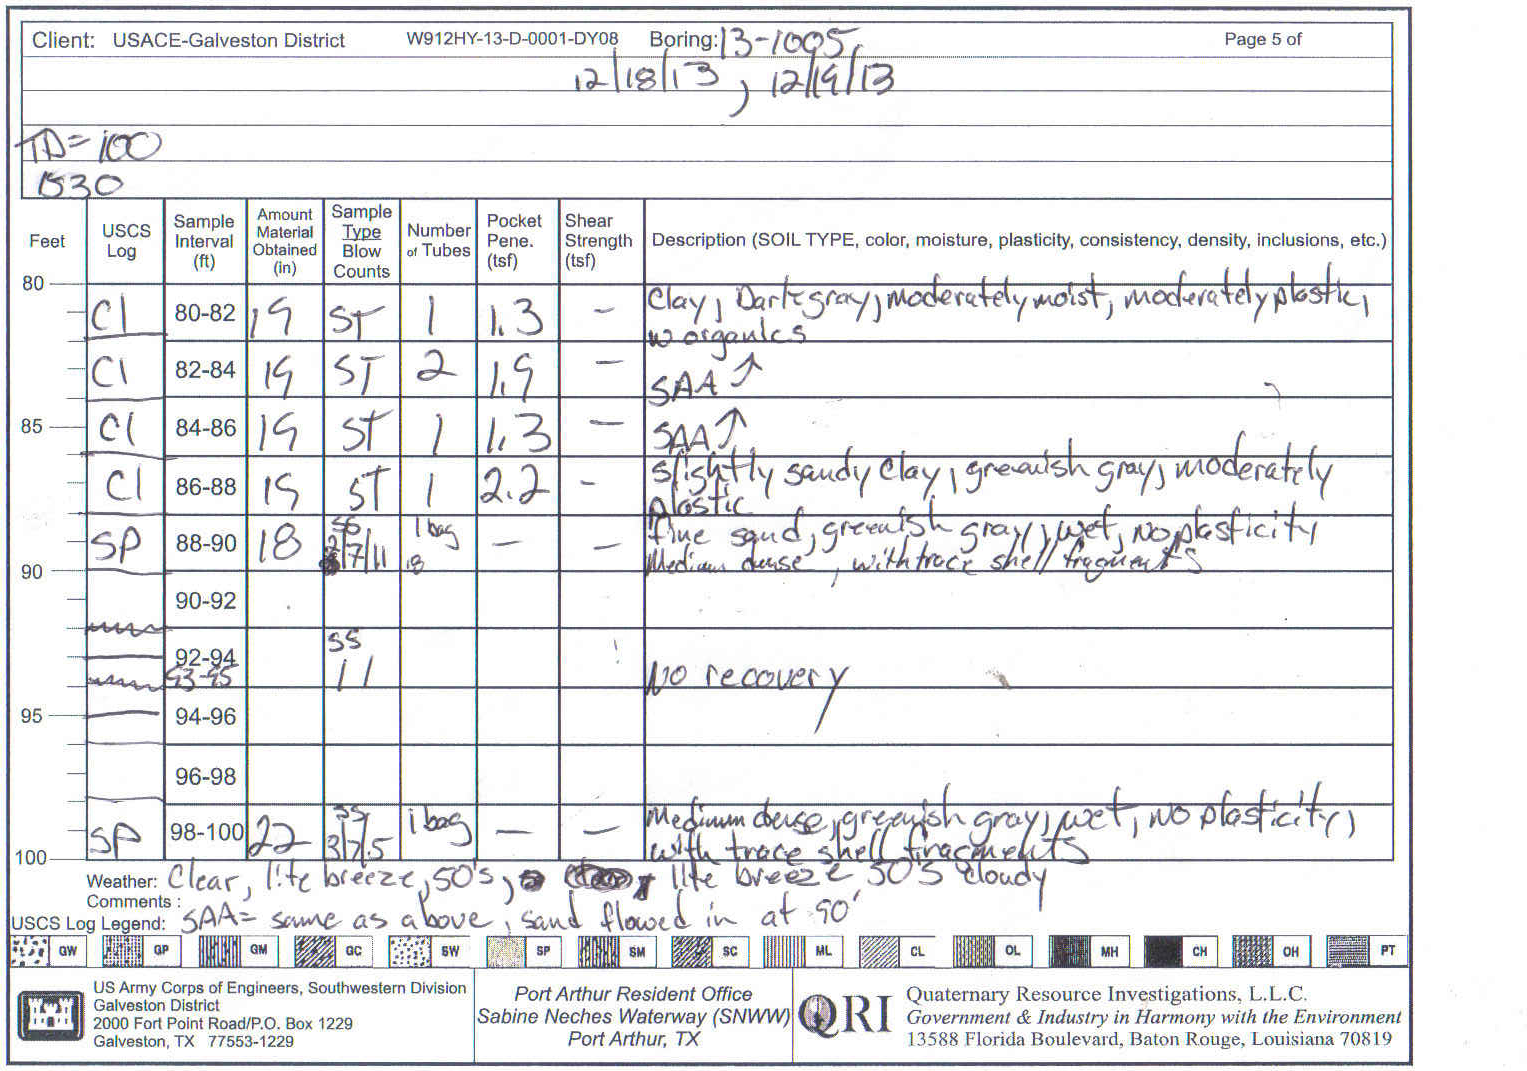 Client: USACE-Galveston District W912HY-13-D-0001-DY08 Boring: 13-1005 Page 5 of
12/18/13, 12/19/13
TD=100
1530
Feet USCS Log Sample Interval (ft) Amount Material Obtained (in) Sample Type Blow Counts Number of Tubes Pocket Pene. (tsf) Shear Strength (tsf) Description (SOIL TYPE, color, moisture, plasticity, consistency, density, inclusions, etc.)
80
Cl 80-82 19 ST 1 1.3 - Clay, Dark gray, moderately moist, moderately plastic,
w organics
Cl 82-84 19 ST 2 1.9 - SAA ↑
85 Cl 84-86 19 ST 1 1.3 - SAA ↑
Cl 86-88 19 ST 1 2.2 - slightly sandy Clay, greenish gray, moderately
plastic
SP 88-90 18 SS 7/11 1 bag 18 - - fine sand, greenish gray, wet, no plasficity
Medium dense, with trace shell fragments
90
90-92
92-94 SS
93-95 11 No recovery
95 94-96
96-98
SP 98-100 22 SS 3/7.5 1 bag - - Medium dense, greenish gray, wet, no plasticity,
with trace shell fragments
100
Weather: Clear, lite breeze, 50's, lite breeze 50's cloudy
Comments :
USCS Log Legend: SAA= same as above, sand flowed in at 90'
GW GP GM GC SW SP SM SC ML CL OL MH CH OH PT
US Army Corps of Engineers, Southwestern Division
Galveston District
2000 Fort Point Road/P.O. Box 1229
Galveston, TX 77553-1229
Port Arthur Resident Office
Sabine Neches Waterway (SNWW)
Port Arthur, TX
QRI
Quaternary Resource Investigations, L.L.C.
Government & Industry in Harmony with the Environment
13588 Florida Boulevard, Baton Rouge, Louisiana 70819